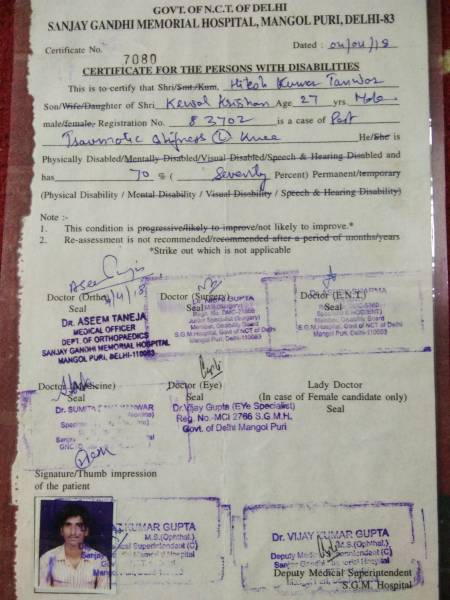 GOVT. OF N.C.T. OF DELHI
SANJAY GANDHI MEMORIAL HOSPITAL, MANGOL PURI, DELHI-83
Certificate No. 7080 Dated : 04/04/18
CERTIFICATE FOR THE PERSONS WITH DISABILITIES
This is to certify that Shri/Smt./Kum. Hitesh Kumar Tanwar
Son/Wife/Daughter of Shri Kewal Krishan Age 27 yrs Male
male/female, Registration No. 83702 is a case of Post
Traumatic stiffness (L) knee He/She is
Physically Disabled/Mentally Disabled/Visual Disabled/Speech & Hearing Disabled and
has 70 % ( Seventy Percent) Permanent/temporary
(Physical Disability / Mental Disability / Visual Disability / Speech & Hearing Disability)
Note :-
1. This condition is progressive/likely to improve/not likely to improve.*
2. Re-assessment is not recommended/recommended after a period of months/years
*Strike out which is not applicable
4/4/18
Doctor (Ortho) Doctor (Surgery) Doctor (E.N.T.)
Seal Seal Seal
DR. ASEEM TANEJA
MEDICAL OFFICER
DEPT. OF ORTHOPAEDICS
SANJAY GANDHI MEMORIAL HOSPITAL
MANGOL PURI, DELHI-110083
GUPTA
Disability Board
S.G.M. Hospital, Govt of NCT of Delhi
Mangol Puri, Delhi-110083
Disability Board
S.G.M. Hospital, Govt of NCT of Delhi
Mangol Puri, Delhi-110083
Doctor (Medicine) Doctor (Eye) Lady Doctor
Seal Seal (In case of Female candidate only)
Seal
Dr.Vijay Gupta (EYe Specialist)
Reg. No.-MCI 2766 S.G.M.H.
Govt. of Delhi Mangol Puri
Signature/Thumb impression
of the patient
KUMAR GUPTA
M.S.(Ophthal.)
Medical Superintendent (C)
Hospital
Dr. VIJAY KUMAR GUPTA
M.S.(Ophthal.)
Deputy Medical Superintendent (C)
Sanjay Gandhi Memorial Hospital
Deputy Medical Superintendent
S.G.M. Hospital